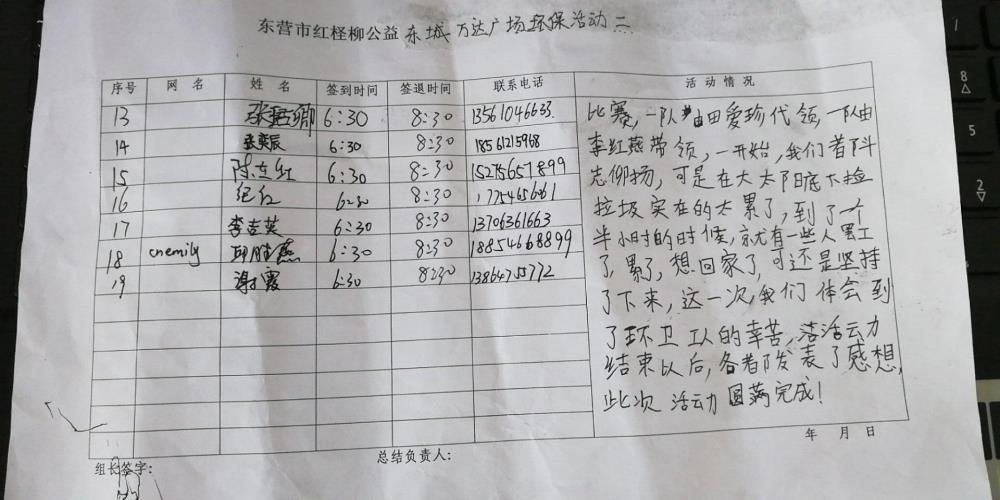 东营市红柽柳公益东城万达广场环保活动二
序号 网名 姓名 签到时间 签退时间 联系电话 活动情况
13 6:30 8:30 13561046633
14 6:30 8:30 18561215968
15 陈东红 6:30 8:30 15275657899
16 纪红 6:30 8:30 17754656061
17 李志英 6:30 8:30 13706361663
18 cnemily 6:30 8:30 18854668899
19 谢霞 6:30 8:30 13864755772
比赛,一队由田爱珍代领,一队由
李红燕带领,一开始,我们着阧
志仰扬,可是在大太阳底下捡
垃圾实在的太累了,到了一个
半小时的时候,就有一些人罢工
了,累了,想回家了,可还是坚持
了下来,这一次,我们体会到
了环卫工人的幸苦,活动
结束以后,各都发表了感想,
此次活动圆满完成!
年 月 日
组长签字: 总结负责人: